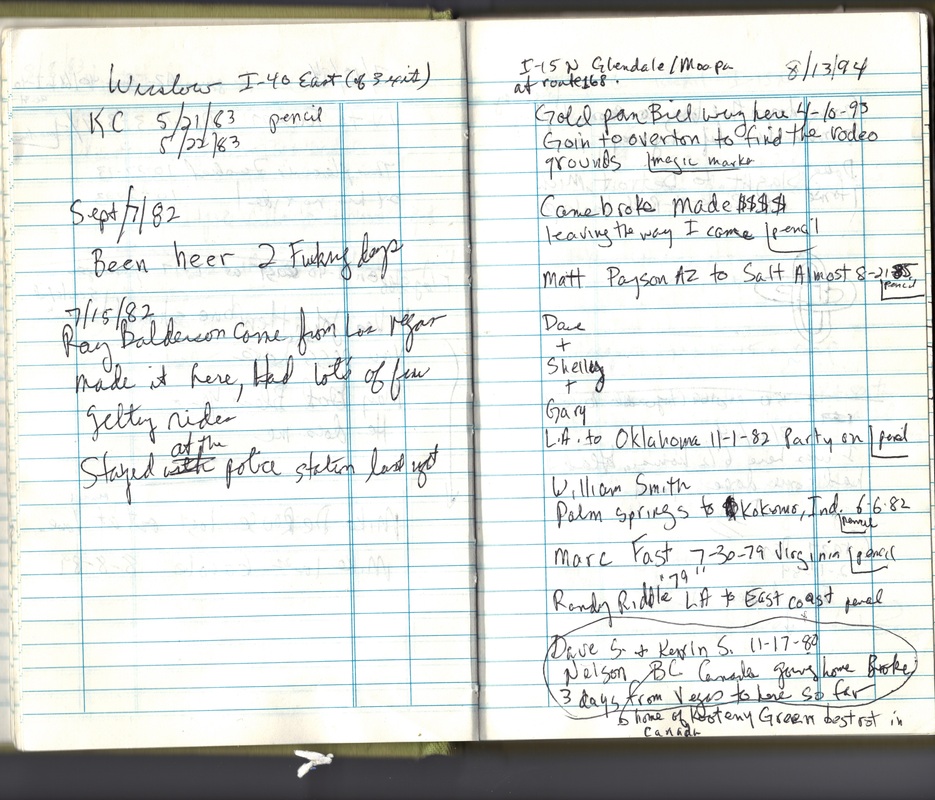 Winslow I-40 East (of 3 exit)
KC 5/21/83 pencil
5/22/83
Sept/7/82
Been heer 2 Fucking days
7/15/82
Ray Balderson came from Las vegas
made it here, Had lots of fun
getting rides
at the
Stayed police station last
I-15 N Glendale/Moapa 8/13/94
at route 168.
Gold pan Bill was here 4-10-93
Goin to overton to find the rodeo
grounds magic marker
Came broke Made $$$$
leaving the way I came pencil
Matt Payson AZ to Salt Almost 8-21-85
pencil
Dave
+
Shelley
+
Gary
L.A. to Oklahoma 11-1-82 Party on pencil
William Smith
Palm springs to Kokomo, Ind. 6-6-82
pencil
Marc Fast 7-30-79 Virginin pencil
"79"
Randy Riddle LA to East coast pencil
Dave S. + Kevin S. 11-17-80
Nelson BC Canada going home Broke
3 days from Vegas to here so far
home of Kooteny Green best in
Canada